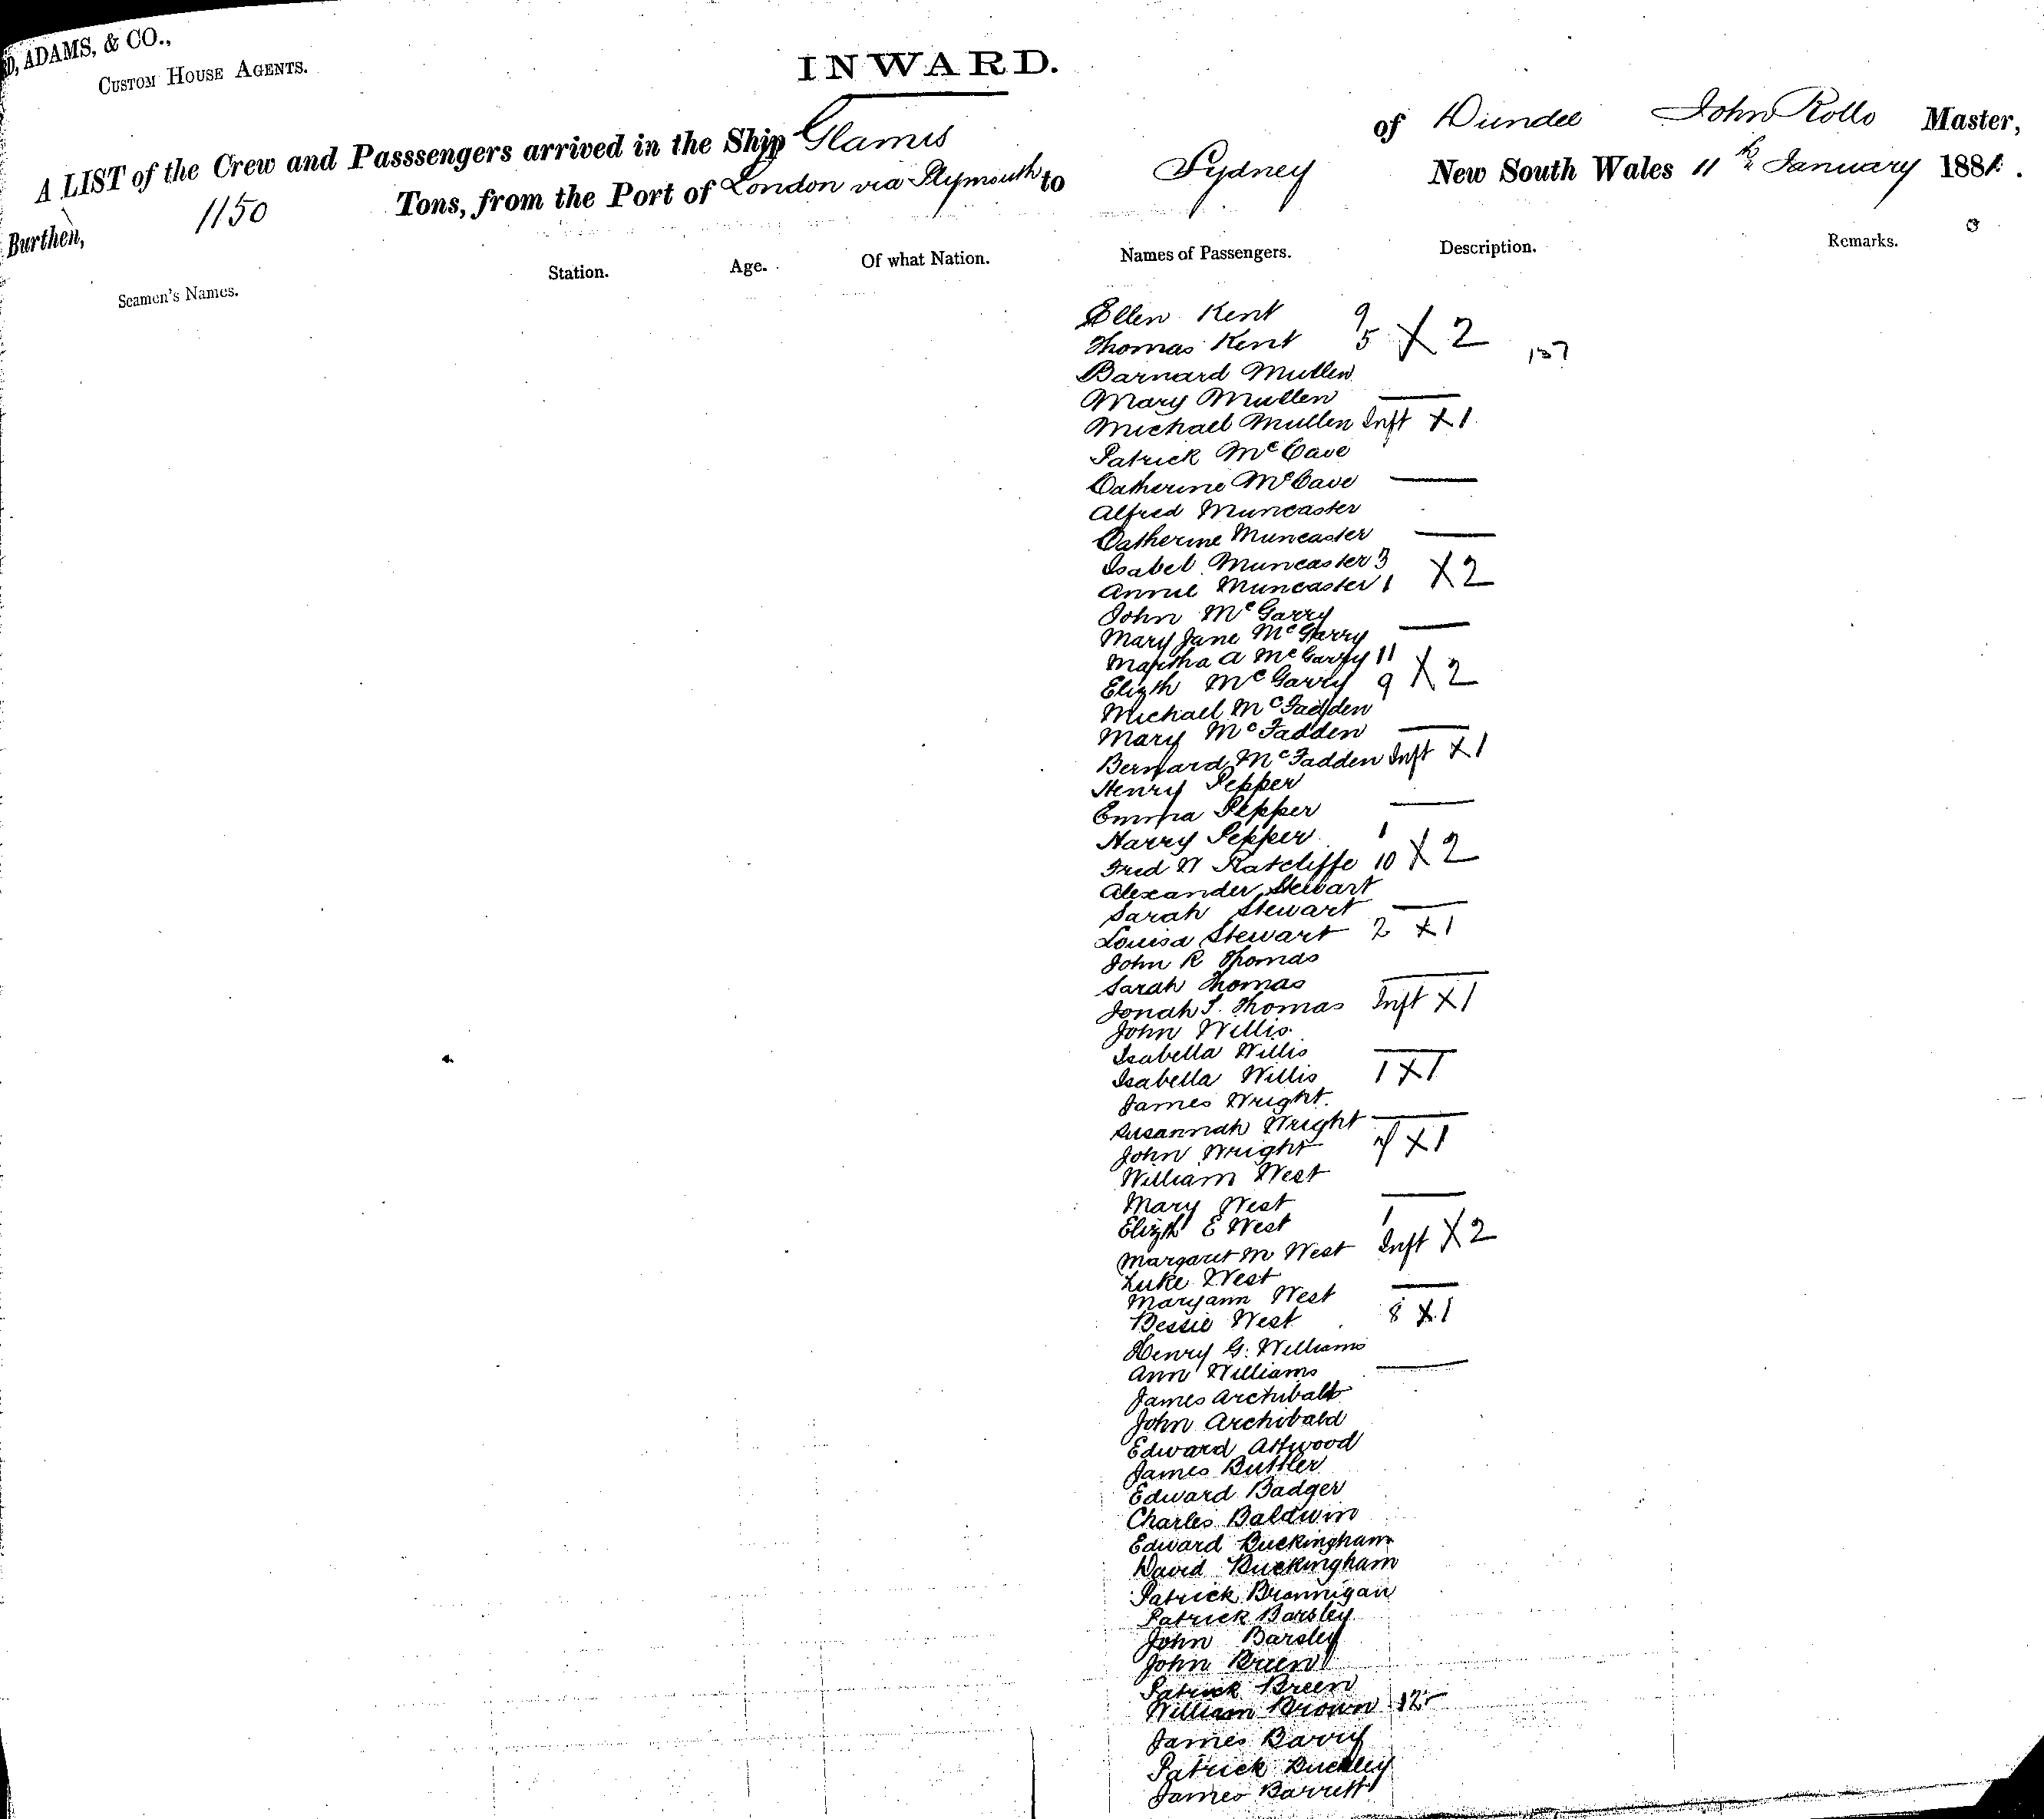 D, ADAMS, & CO.,
CUSTOM HOUSE AGENTS.
INWARD.
A LIST of the Crew and Passsengers arrived in the Ship Glamis of Dundee John Rollo Master,
Burthen, 1150 Tons, from the Port of London via Plymouth to Sydney New South Wales 11th January 1881.
Seamen's Names. Station. Age. Of what Nation. Names of Passengers. Description. Remarks.
Ellen Kent 9
Thomas Kent 5 X 2 157
Barnard Mullen
Mary Mullen
Michael Mullen Inft X 1
Patrick McCave
Catherine McCave
Alfred Muncaster
Catherine Muncaster
Isabel Muncaster 3
Annie Muncaster 1 X 2
John McGarry
Mary Jane McGarry
Martha A McGarry 11
Elizth McGarry 9 X 2
Michael McFadden
Mary McFadden
Bernard McFadden Inft X 1
Henry Pepper
Emma Pepper
Harry Pepper 1
Fred W Ratcliffe 10 X 2
Alexander Stewart
Sarah Stewart
Louisa Stewart 2 X 1
John R Thomas
Sarah Thomas
Jonah S. Thomas Inft X 1
John Willis
Isabella Willis
Isabella Willis 1 X 1
James Wright
Susannah Wright
John Wright X 1
William West
Mary West
Elizth E West 1
Margaret M West Inft X 2
Luke West
Maryann West
Bessie West 8 X 1
Henry G. Williams
Ann Williams
James Archibald
John Archibald
Edward Attwood
James Buttler
Edward Badger
Charles Baldwin
Edward Buckingham
David Buckingham
Patrick Brannigan
Patrick Barsley
John Barsley
John Breen
Patrick Breen
William Brown 12
James Barry
Patrick Buckley
James Barrett